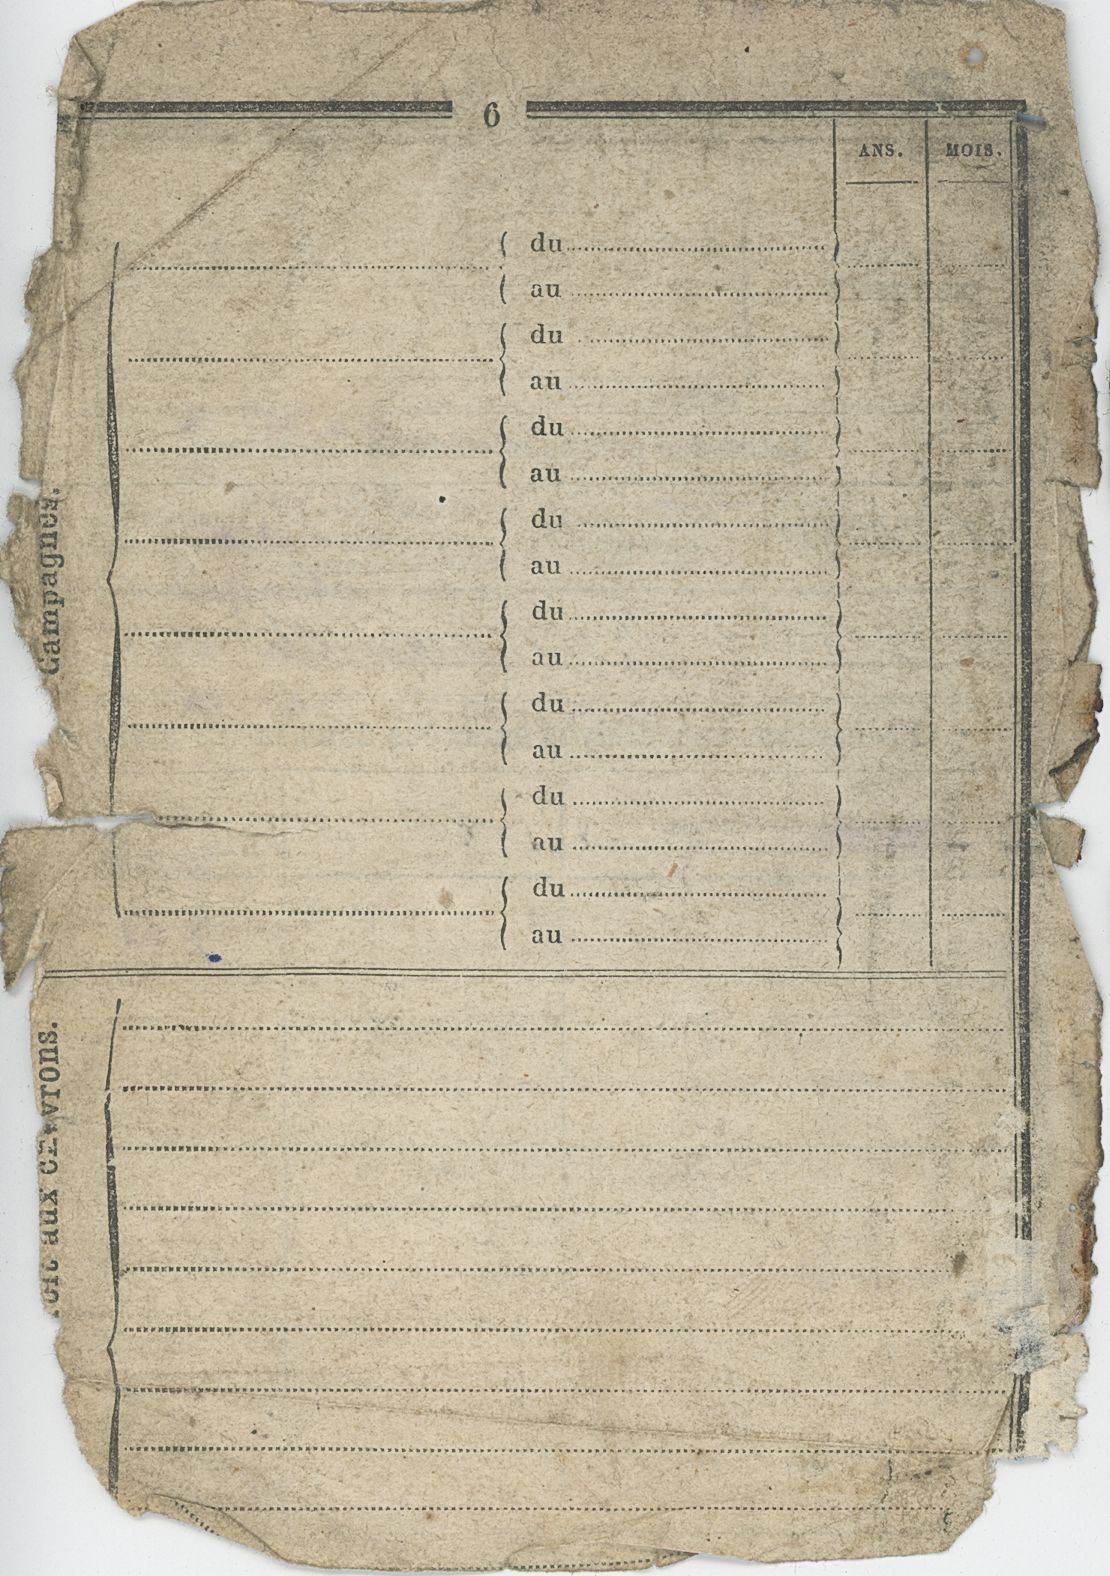 6
ANS. MOIS.
du
au
du
au
du
au
du
au
du
au
du
au
du
au
du
au
Campagnes.
oit aux chevrons.